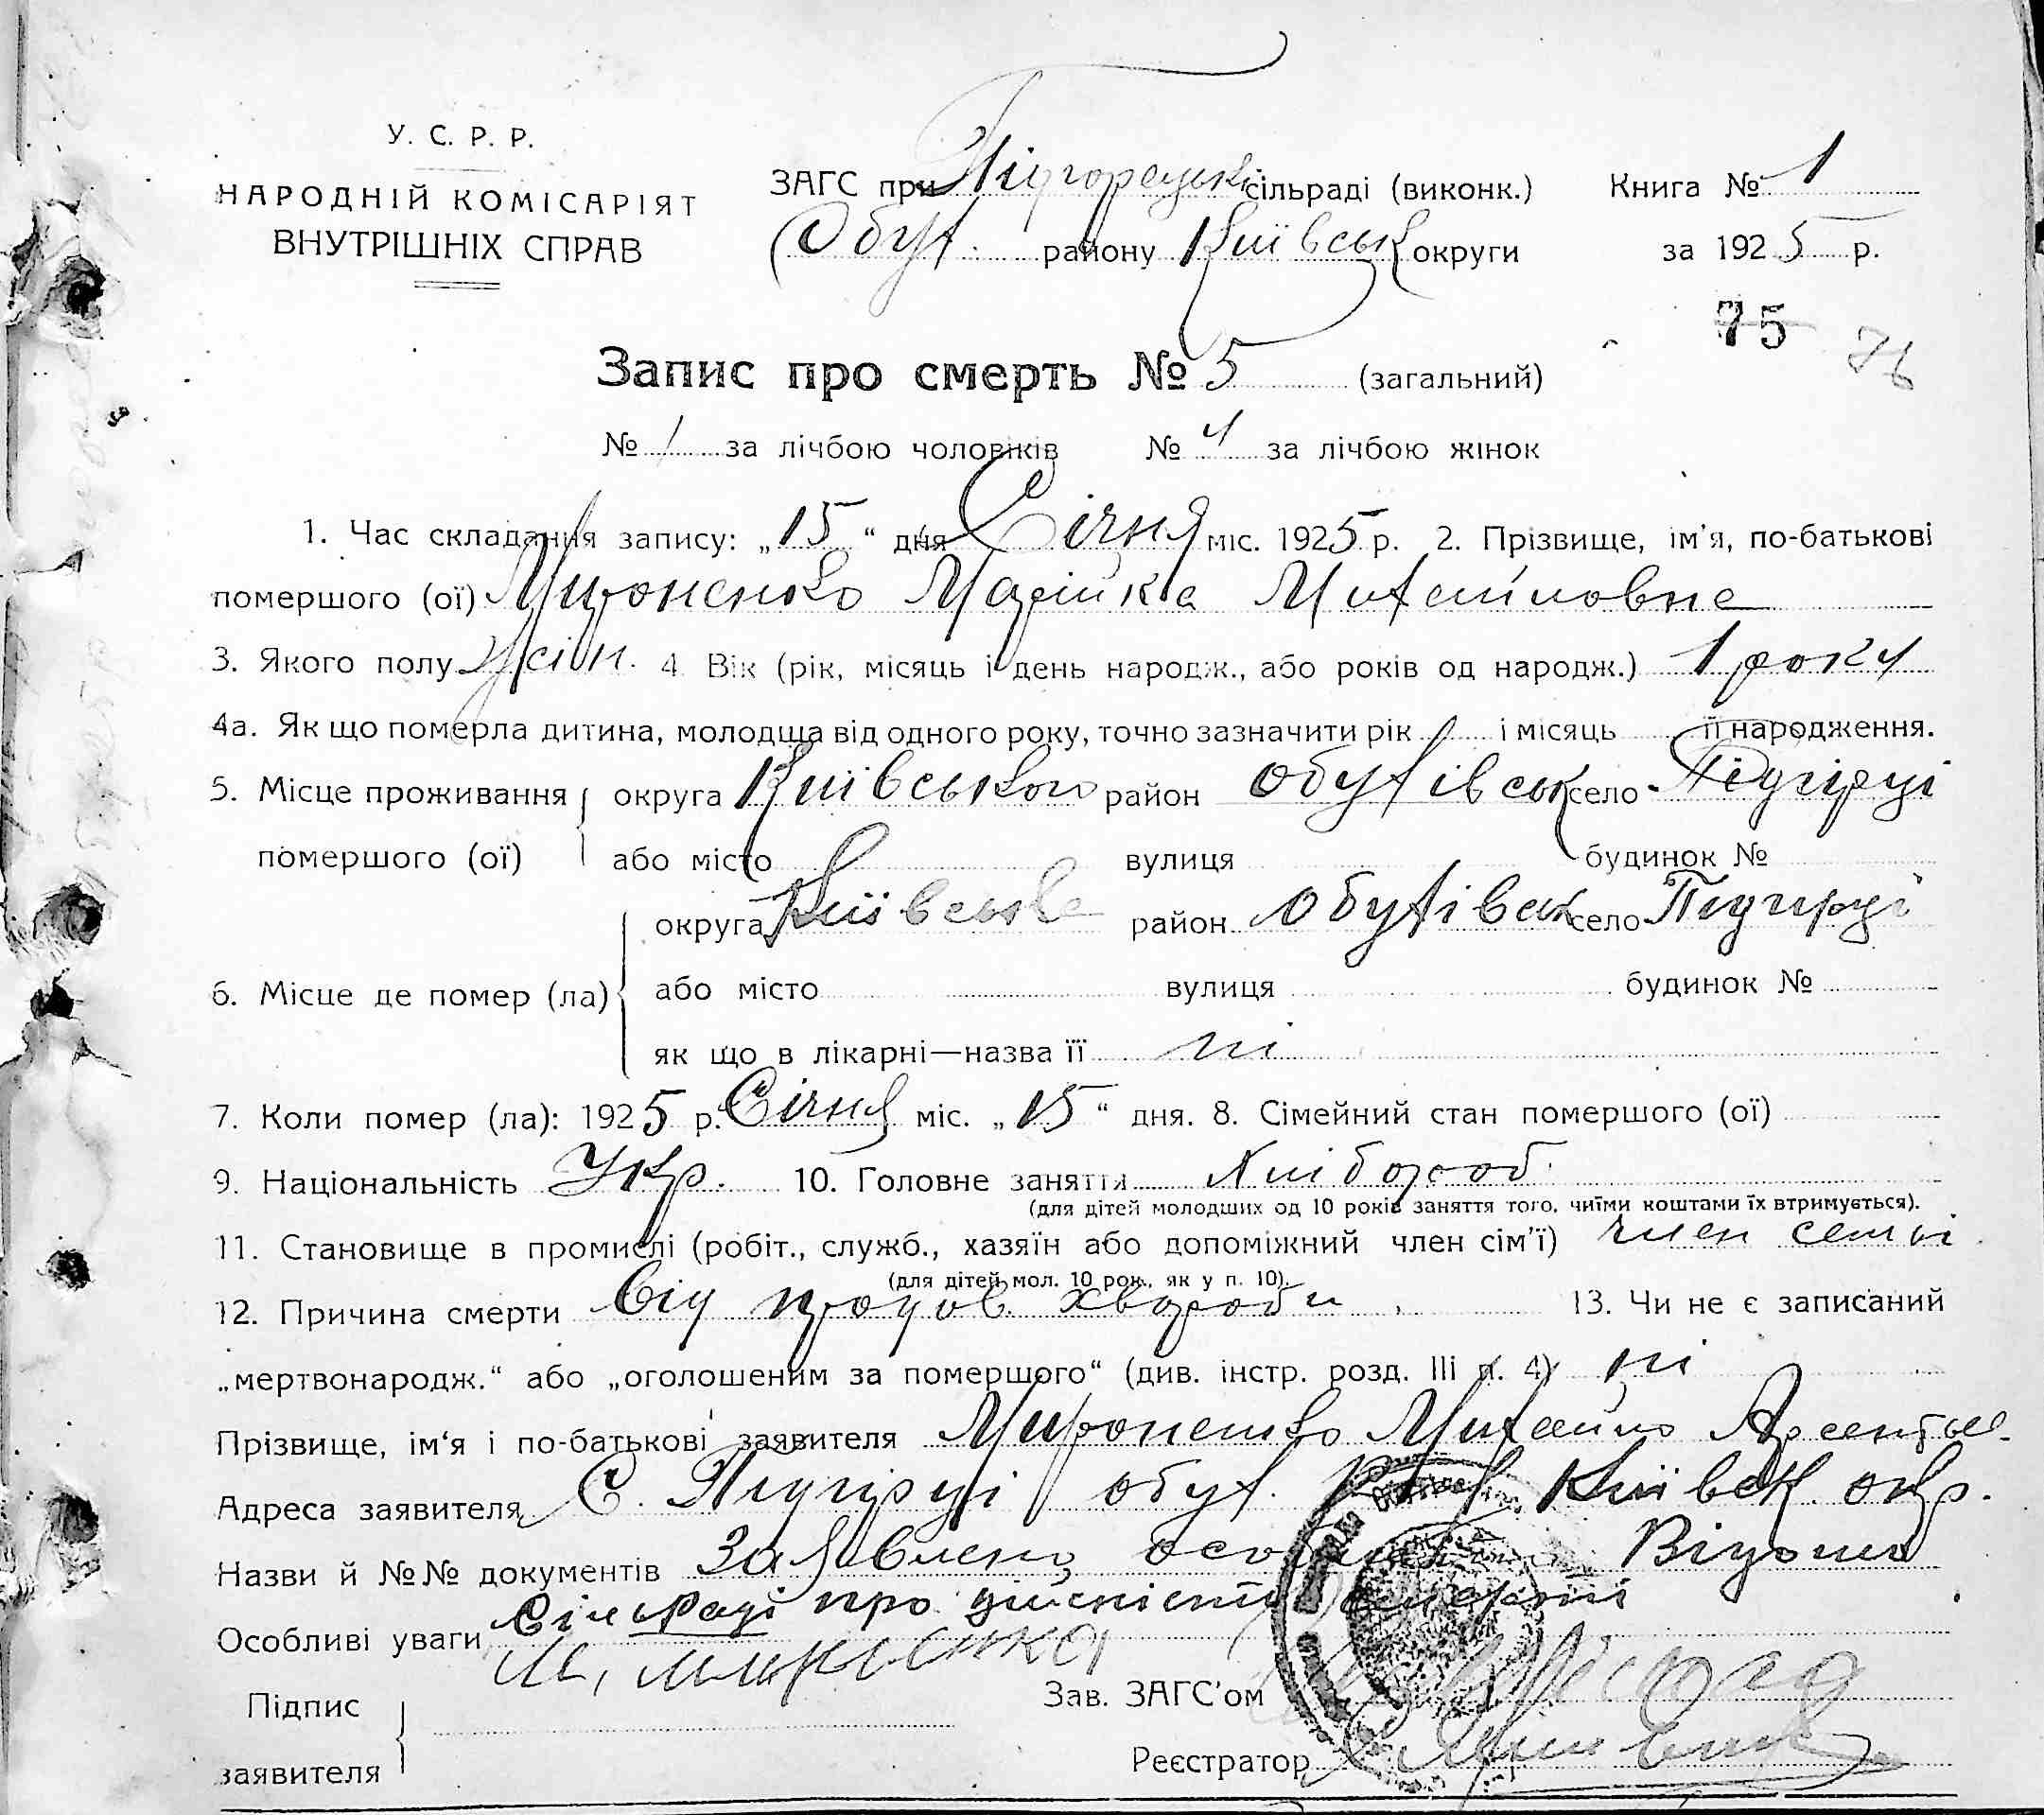 У. С. Р. Р.
НАРОДНІЙ КОМІСАРІЯТ
ВНУТРІШНІХ СПРАВ
ЗАГС при Підгорецькі сільраді (виконк.) Книга № 1
Обух. району Київськ округи за 1925 р.
75 76
Запис про смерть № 5 (загальний)
№ 1 за лічбою чоловіків № 4 за лічбою жінок
1. Час складання запису: „15“ дня Січня міс. 1925 р. 2. Прізвище, ім'я, по-батькові
помершого (ої) Мироненко Марійка Михайловна
3. Якого полу жін. 4. Вік (рік, місяць і день народж., або років од народж.) 1 року
4а. Як що померла дитина, молодща від одного року, точно зазначити рік і місяць її народження.
5. Місце проживання помершого (ої) округа Київського район Обухівськ село Підгірці
або місто вулиця будинок №
округа Київське район Обухівськ село Підгірці
6. Місце де помер (ла) або місто вулиця будинок №
як що в лікарні—назва її ні
7. Коли помер (ла): 1925 р. Січня міс. „15“ дня. 8. Сімейний стан помершого (ої)
9. Національність Укр. 10. Головне заняття хлібороб.
(для дітей молодших од 10 років заняття того, чиїми коштами їх втримується).
11. Становище в промислі (робіт., служб., хазяїн або допоміжний член сім'ї) член семьї
(для дітей мол. 10 рок., як у п. 10).
12. Причина смерти від хвороби 13. Чи не є записаний
„мертвонародж.“ або „оголошеним за помершого“ (див. інстр. розд. III п. 4) ні
Прізвище, ім'я і по-батькові заявителя Мироненко Михайло
Адреса заявителя С. Підгірці обух. Київськ. окр.
Назви й №№ документів Заявлено Відомо
Сільраді про дійсність смерти
Особливі уваги
Підпис заявителя
Зав. ЗАГС'ом
Реєстратор